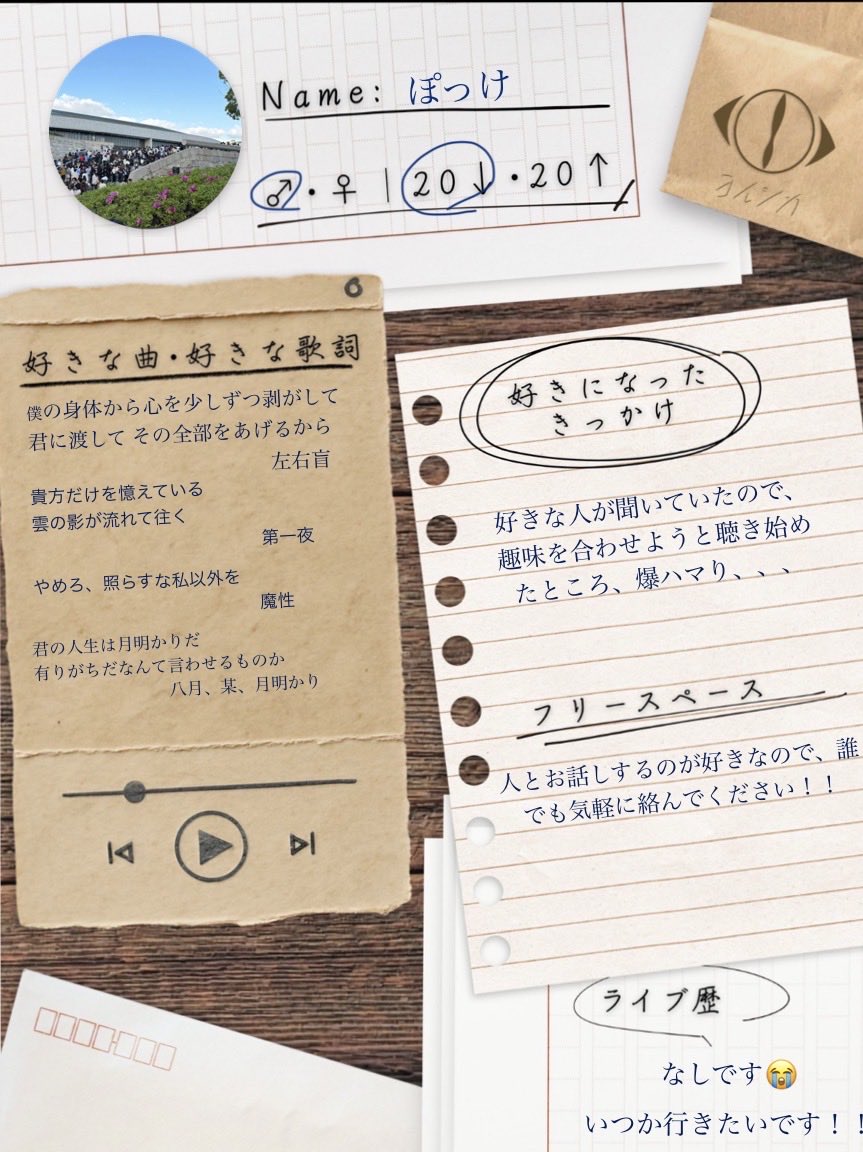 Name: ぽっけ
♂・♀ | 20↓・20↑
ヨルシカ
好きな曲・好きな歌詞
僕の身体から心を少しずつ剥がして
君に渡して その全部をあげるから
左右盲
貴方だけを憶えている
雲の影が流れて往く
第一夜
やめろ、照らすな私以外を
魔性
君の人生は月明かりだ
有りがちだなんて言わせるものか
八月、某、月明かり
好きになった
きっかけ
好きな人が聞いていたので、
趣味を合わせようと聴き始め
たところ、爆ハマり、、、
フリースペース
人とお話しするのが好きなので、誰
でも気軽に絡んでください！！
ライブ歴
なしです😭
いつか行きたいです！！